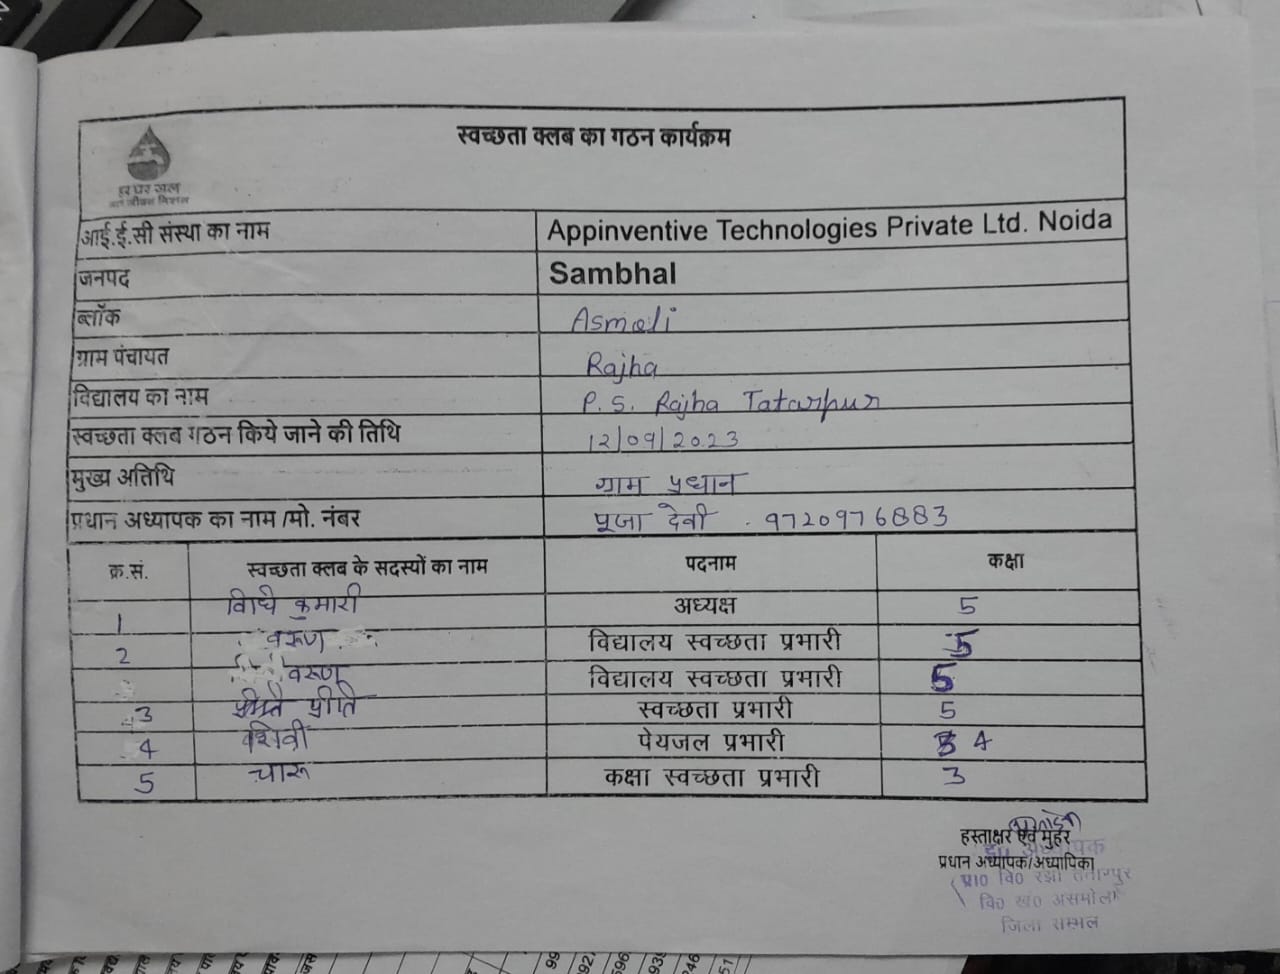 स्वच्छता क्लब का गठन कार्यक्रम
हर घर जल
जल जीवन मिशन
आई.ई.सी संस्था का नाम Appinventive Technologies Private Ltd. Noida
जनपद Sambhal
ब्लॉक Asmoli
ग्राम पंचायत Rajha
विद्यालय का नाम P.S. Rajha Tatarpur
स्वच्छता क्लब गठन किये जाने की तिथि 12/09/2023
मुख्य अतिथि ग्राम प्रधान
प्रधान अध्यापक का नाम /मो. नंबर पूजा देवी . 9720976883
क्र.सं. स्वच्छता क्लब के सदस्यों का नाम पदनाम कक्षा
1 विधि कुमारी अध्यक्ष 5
2 वरूण विद्यालय स्वच्छता प्रभारी 5
वरूण विद्यालय स्वच्छता प्रभारी 5
3 प्रीति स्वच्छता प्रभारी 5
4 शिवी पेयजल प्रभारी 4
5 चारू कक्षा स्वच्छता प्रभारी 3
हस्ताक्षर एवं मुहर
प्रधान अध्यापक/अध्यापिका
अध्यापक
प्रा0 वि0 रझा ततारपुर
वि0 खं0 असमोली
जिला सम्भल